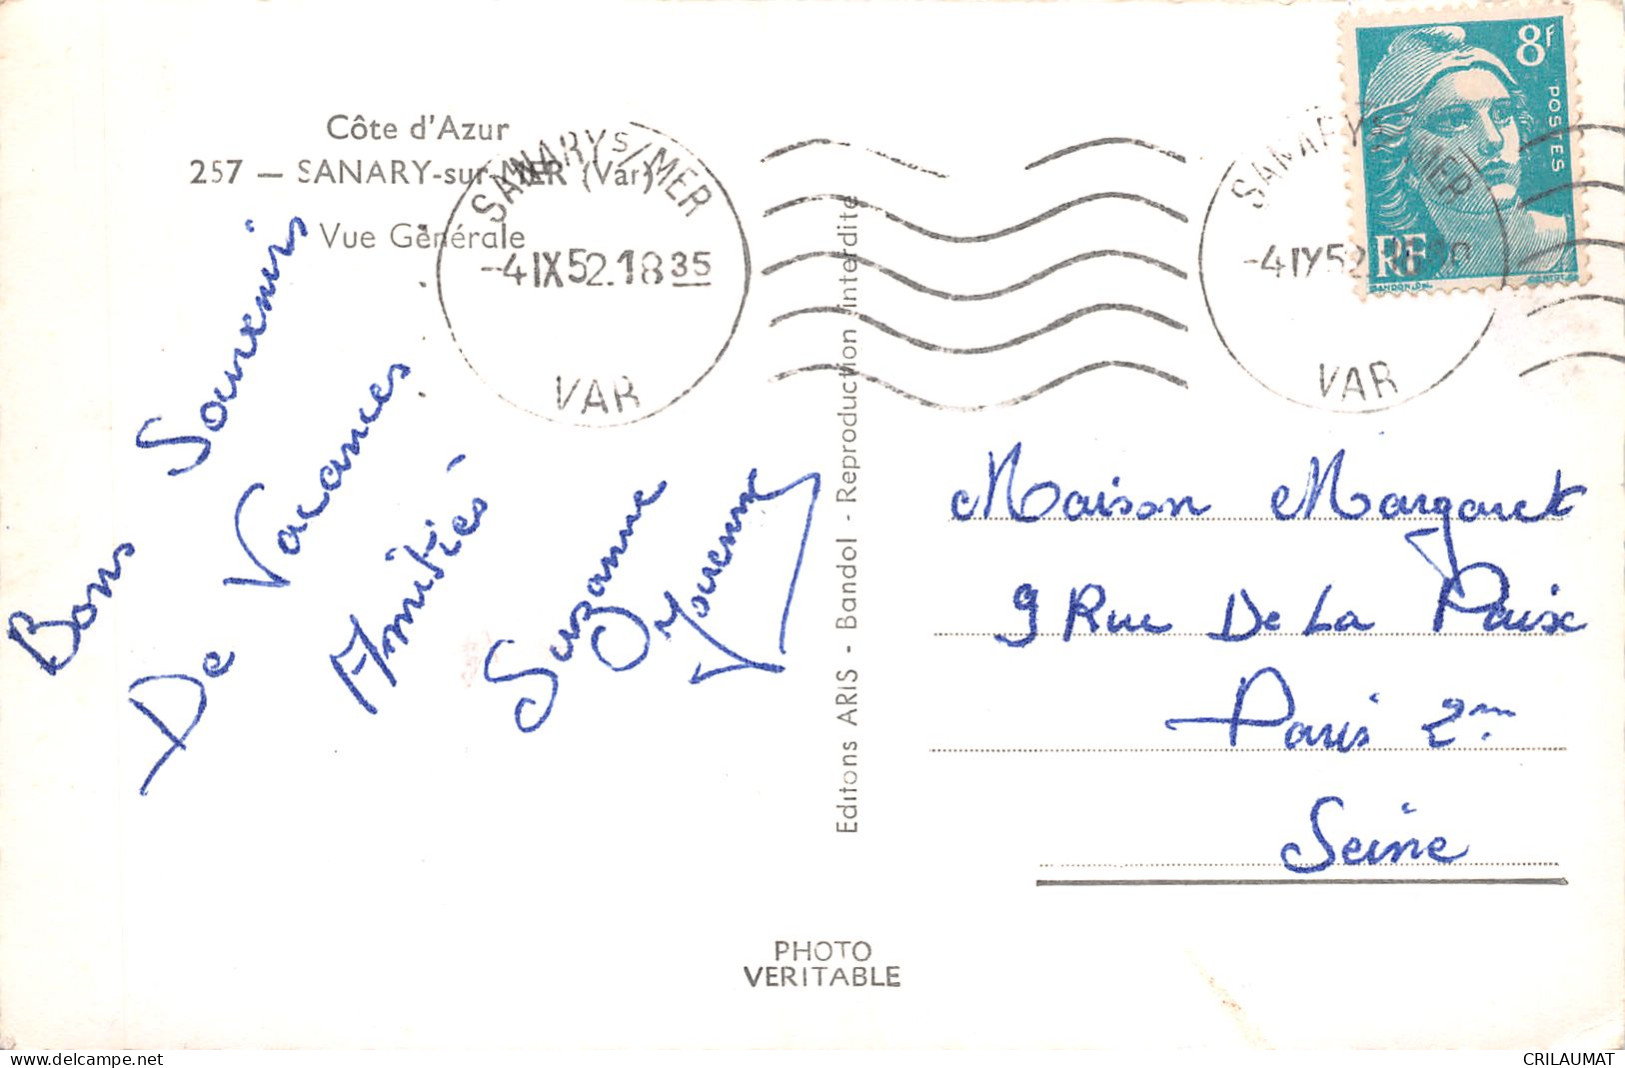 Côte d'Azur
257 — SANARY-sur-MER (Var)
Vue Générale
SANARY S/MER
-4 IX 52.18 35
VAR
SANARY S/MER
VAR
8f
POSTES
RF
Bons Souvenirs
De Vacances
Amitiés
Suzanne
Editons ARIS - Bandol - Reproduction interdite
Maison Margaret
9 Rue De La Paix
Paris 2me
Seine
PHOTO
VERITABLE
www.delcampe.net
CRILAUMAT